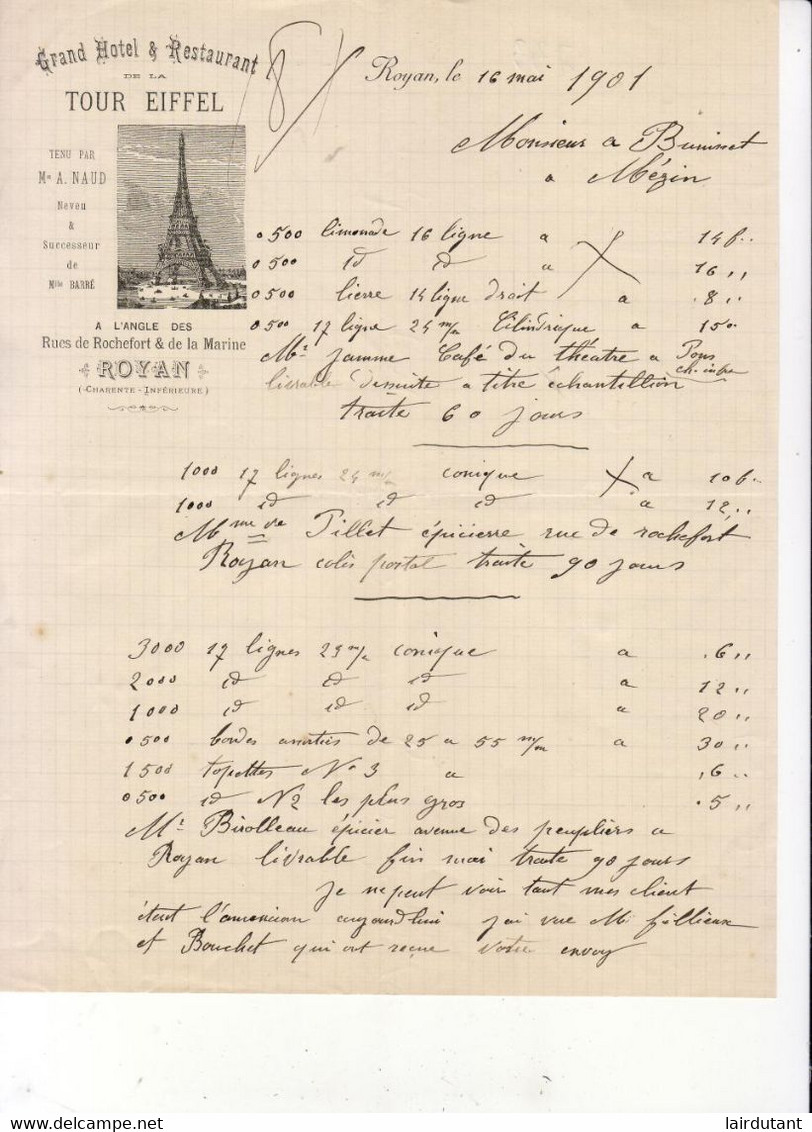 Grand Hotel & Restaurant
DE LA
TOUR EIFFEL
TENU PAR
Mr A. NAUD
Neveu
&
Successeur
de
Mlle BARRÉ
A L'ANGLE DES
Rues de Rochefort & de la Marine
ROYAN
(CHARENTE-INFÉRIEURE)
Royan, le 16 mai 1901
Monsieur a
a Mézin
0500 limonade 16 ligne a 14 f..
0500 id id a 16 ,,
0500 lierre 14 ligne droit a .8 ,,
0500 17 ligne 24 m/m Cilindrique a 15 0
Mr Jamme Café du théatre a Pons
ch. infre
livrable dessuite a titre échantillion
traite 60 jours
1000 17 lignes 24 m/m conique a 10 f..
1000 id id id a 12 ,,
Mme vve Pillet épicierre rue de rochefort
Royan colis postal traite 90 jours
3000 17 lignes 23 m/m conique a .6 ,,
2000 id id id a 12 ,,
1000 id id id a 20 ,,
0500 bondes assorties de 25 a 55 m/m a 30 ,,
1500 topettes No 3 a ,6 ,,
0500 id N2 les plus gros .5 ,,
Mr Birolleau épicier avenue des peupliers a
Royan livrable fin mai traite 90 jours
je ne peut voir tout mes client
étant l'asencion aujourd'hui j'ai vue Mr fillieux
et Bouchet qui ont reçue votre envoy
delcampe.net
lairdutant